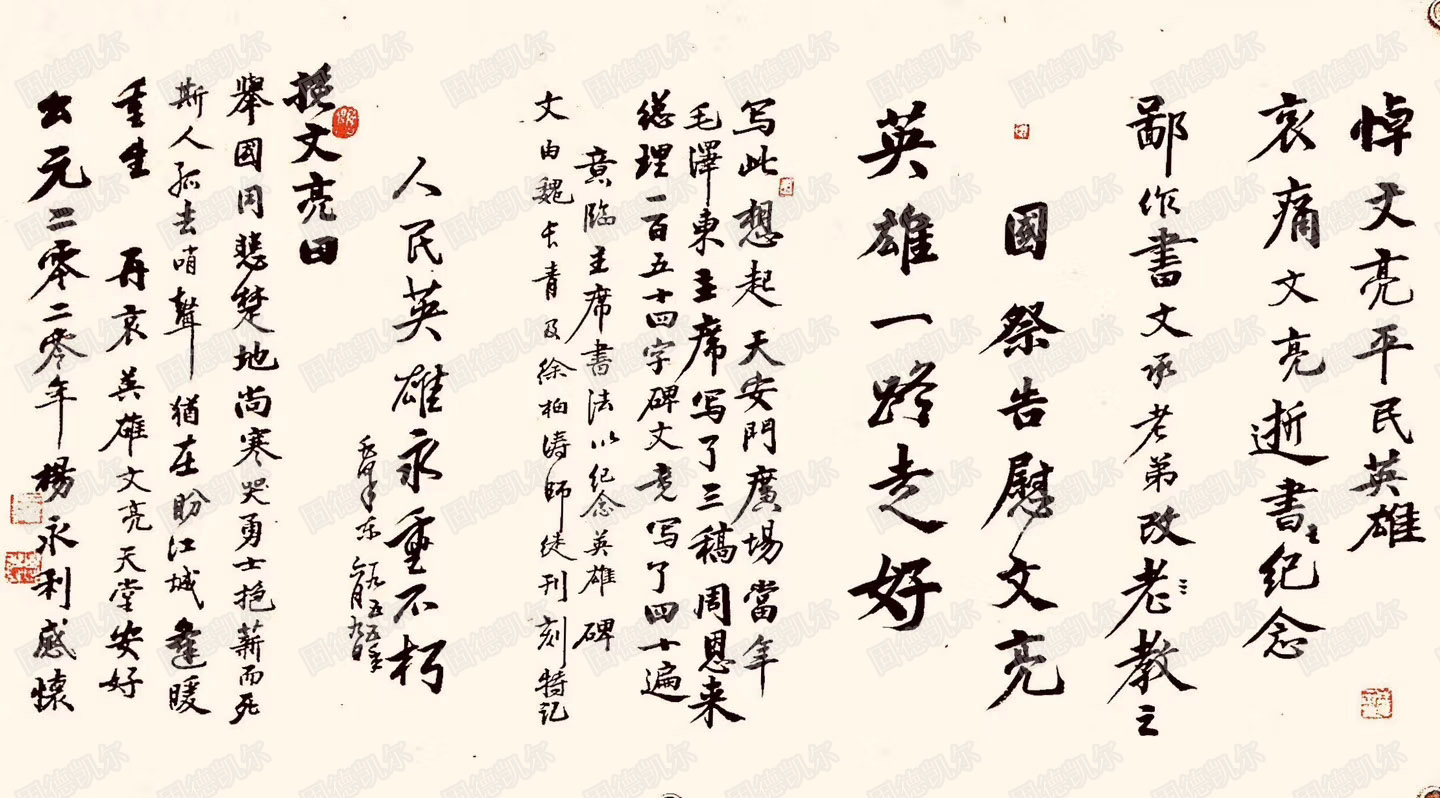 悼文亮平民英雄
哀痛文亮逝書纪念
鄙作書文承老弟改老教之
國祭告慰文亮
英雄一路走好
写此想起天安門廣場當年
毛澤東主席写了三稿周恩来
總理一百五十四字碑文竟写了四十遍
意臨主席書法以纪念英雄碑
文由魏长青及徐柏涛師徒刊刻特记
人民英雄永垂不朽
毛澤东
一九五五年六月九日
挽文亮曰
舉國同悲楚地尚寒哭勇士抱薪而死
斯人孤去哨聲猶在盼江城逢暖
重生 再哀英雄文亮天堂安好
公元二零二零年楊永利感懷
固德凯尔